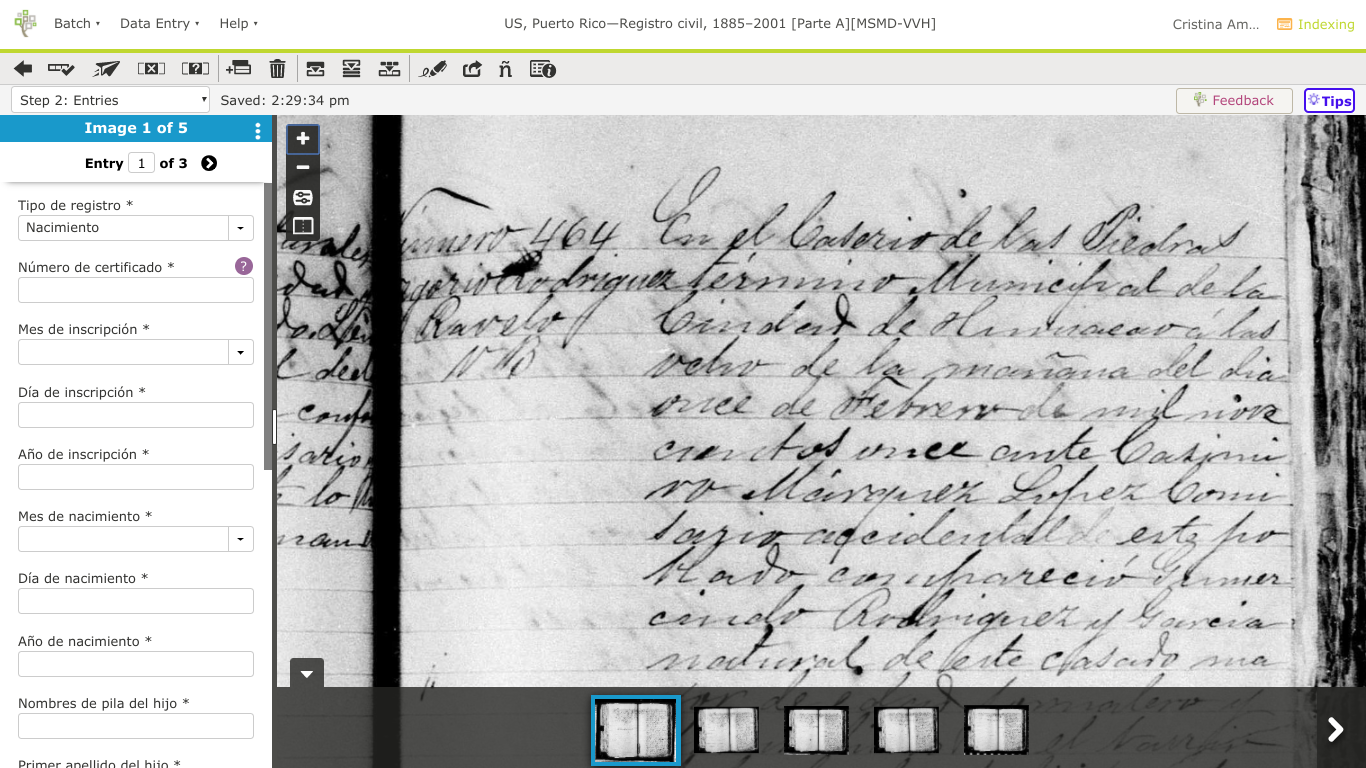 Batch
Data Entry
Help
US, Puerto Rico—Registro civil, 1885–2001 [Parte A][MSMD-VVH]
Cristina Am...
Indexing
ñ
Step 2: Entries
Saved: 2:29:34 pm
Feedback
Tips
Image 1 of 5
Entry 1 of 3
Tipo de registro *
Nacimiento
Número de certificado *
?
Mes de inscripción *
Día de inscripción *
Año de inscripción *
Mes de nacimiento *
Día de nacimiento *
Año de nacimiento *
Nombres de pila del hijo *
Primer apellido del hijo *
Número 464
Rodriguez
Ravelo
En el Caserio de las Piedras
término Municipal de la
Ciudad de Humacao á las
ocho de la mañana del dia
once de Febrero de mil nove
cientos once ante Casimi
ro Márquez Lopez Comi
sario accidental de este po
blado compareció Gumer
cindo Rodriguez y Garcia
natural de este casado ma